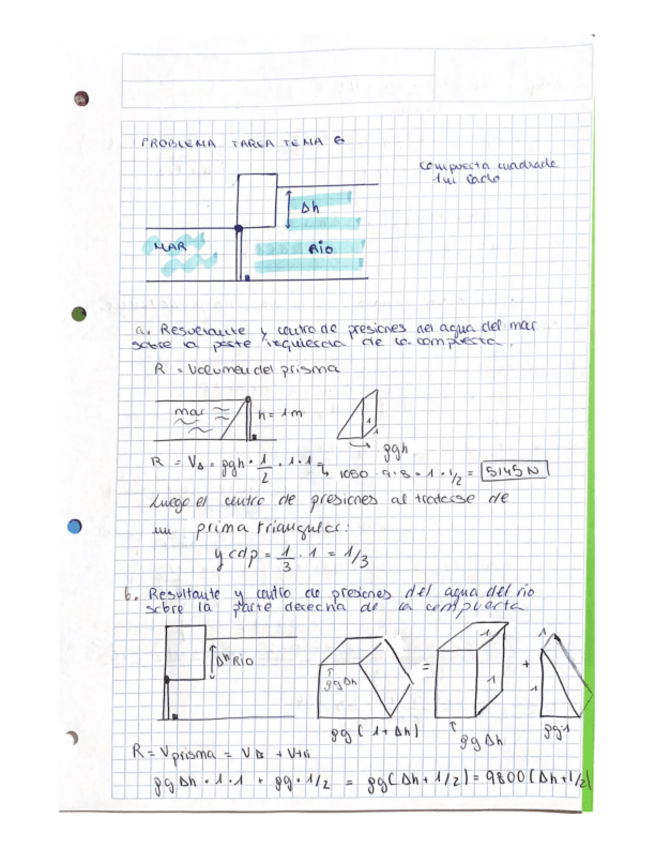 PROBLEMA TAREA TEMA 6
compuerta cuadrada
1m lado
Δh
MAR
RIO
a. Resultante y centro de presiones del agua del mar
sobre la parte izquierda de la compuerta.
R = Volumen del prisma
mar
h = 1m
1
1
ρgh
R = V = ρgh · 1/2 · 1 · 1 = 1050 · 9.8 · 1 · 1/2 = 5145 N
Luego el centro de presiones al tratarse de
un prima triangular:
ycdp = 1/3 · 1 = 1/3
b. Resultante y centro de presiones del agua del rio
sobre la parte derecha de la compuerta
Δh RIO
ρgΔh
=
1
1
+
1
1
ρg (1+Δh)
ρgΔh
ρg·1
R = Vprisma = V + Vtri
ρgΔh · 1 · 1 + ρg · 1/2 = ρg(Δh + 1/2) = 9800 (Δh + 1/2)